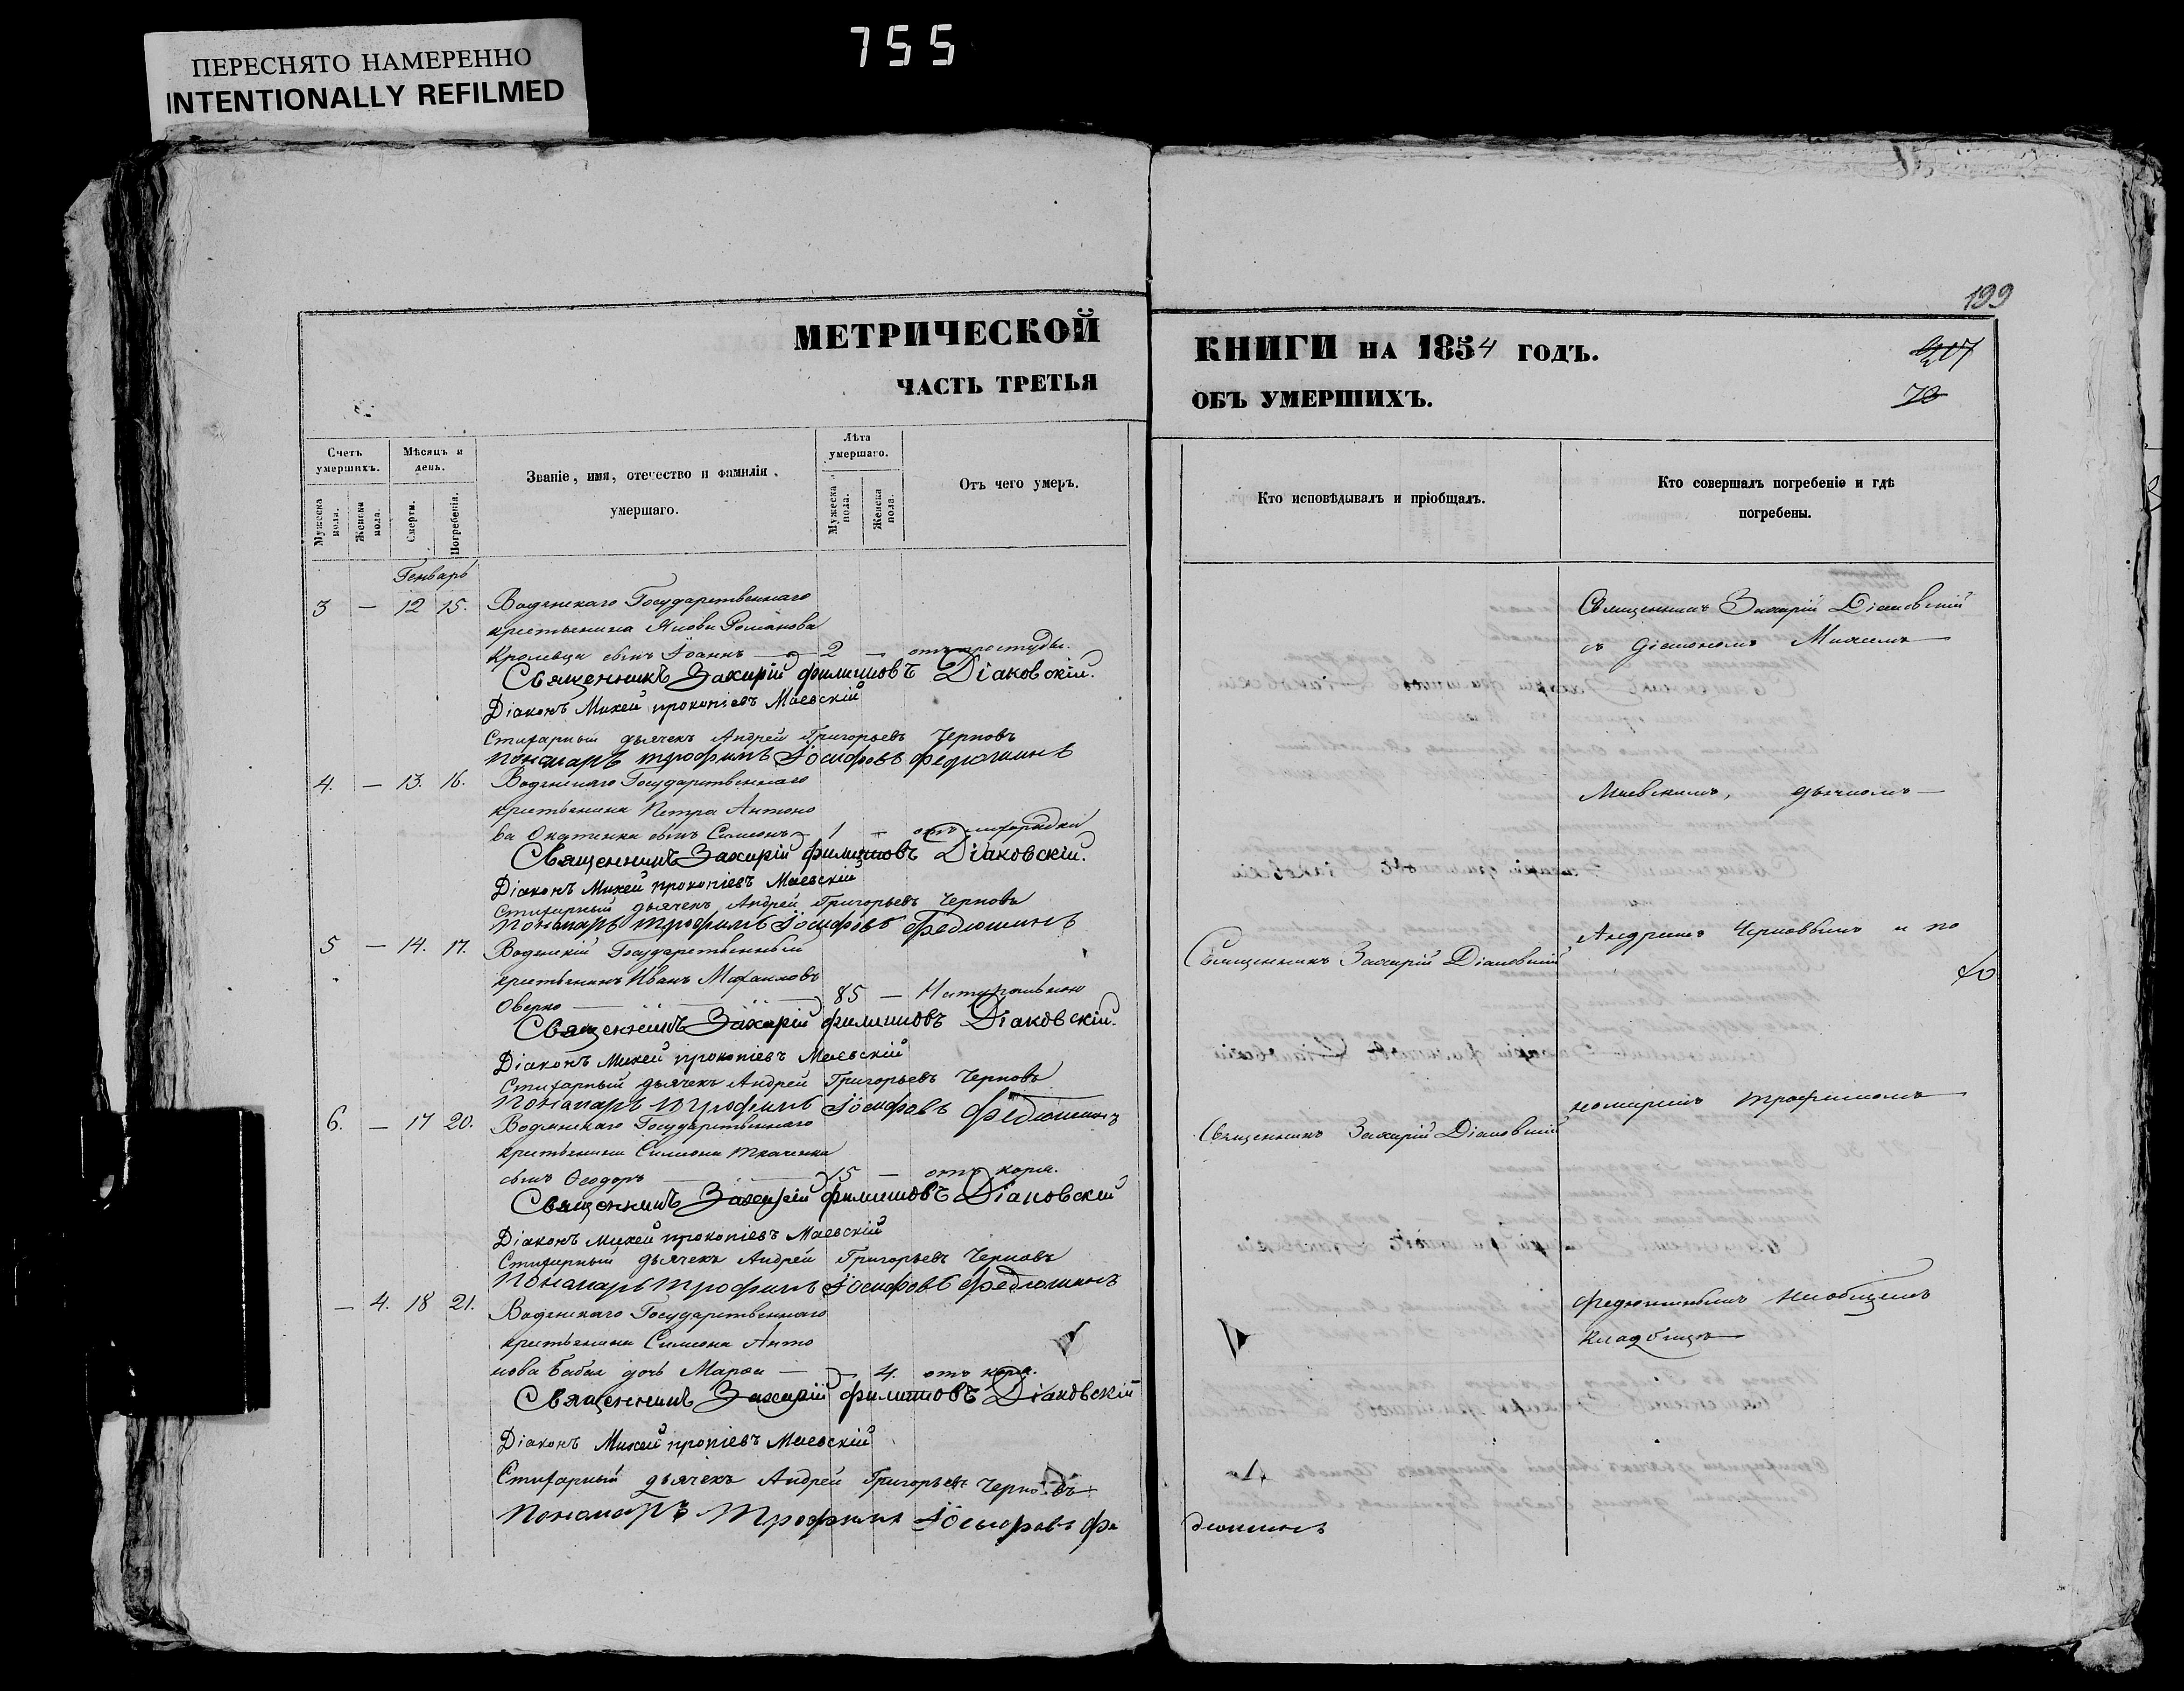 755
ПЕРЕСНЯТО НАМЕРЕННО
INTENTIONALLY REFILMED
199
МЕТРИЧЕСКОЙ
КНИГИ НА 1854 ГОДЪ.
ЧАСТЬ ТРЕТЬЯ
ОБЪ УМЕРШИХЪ.
70
Счетъ умершихъ.
Мужеска пола.
Женска пола.
Мѣсяцъ и день.
Смерти.
Погребенія.
Званіе, имя, отечество и фамилія умершаго.
Лѣта умершаго.
Мужеска пола.
Женска пола.
Отъ чего умеръ.
Кто исповѣдывалъ и пріобщалъ.
Кто совершалъ погребеніе и гдѣ погребены.
Генварь
3 — 12 15. Водянскаго Государственнаго
крестьянина Якова Романова
Кролевца сынъ Іоаннъ — 2 — отъ простуды.
Священникъ Захарій Филиповъ Діаковскій.
Діаконъ Михей Прокопіевъ Маевскій
Стихарный дьячекъ Андрей Григорьевъ Черновъ
Пономарь Трофимъ Іосифовъ Федюшинъ
4. — 13. 16. Водянскаго Государственнаго
крестьянина Петра Антоно
ва сынъ Симеонъ — 1 — отъ лихорадки
Священникъ Захарій Филиповъ Діаковскій.
Діаконъ Михей Прокопіевъ Маевскій
Стихарный дьячекъ Андрей Григорьевъ Черновъ
Пономарь Трофимъ Іосифовъ Федюшинъ
5 — 14. 17. Водянскій Государственный
крестьянинъ Иванъ Михаиловъ
Оверко — 85 — Натуральною
Священникъ Захарій Филиповъ Діаковскій.
Діаконъ Михей Прокопіевъ Маевскій
Стихарный дьячекъ Андрей Григорьевъ Черновъ
Пономарь Трофимъ Іосифовъ Федюшинъ
6. — 17 20. Водянскаго Государственнаго
крестьянина Симеона Ткаченка
сынъ Ѳеодоръ — 15 — отъ кори.
Священникъ Захарій Филиповъ Діаковскій
Діаконъ Михей Прокопіевъ Маевскій
Стихарный дьячекъ Андрей Григорьевъ Черновъ
Пономарь Трофимъ Іосифовъ Федюшинъ
— 4. 18 21. Водянскаго Государственнаго
крестьянина Симеона Анто
нова Бабая дочь Марѳа — 4. отъ кори.
Священникъ Захарій Филиповъ Діаковскій
Діаконъ Михей Пропіевъ Маевскій
Стихарный дьячекъ Андрей Григорьевъ Черновъ
Пономарь Трофимъ Іосифовъ Фе
дюшинъ
Священникъ Захарій Діаковскій
Священникъ Захарій Діаковскій
Священникъ Захарій Діаковскій
съ діакономъ Михеемъ
Маевскимъ, дьячкомъ —
Андреемъ Черновымъ и по
номаремъ Трофимомъ
Федюшинымъ на общемъ
кладбищѣ